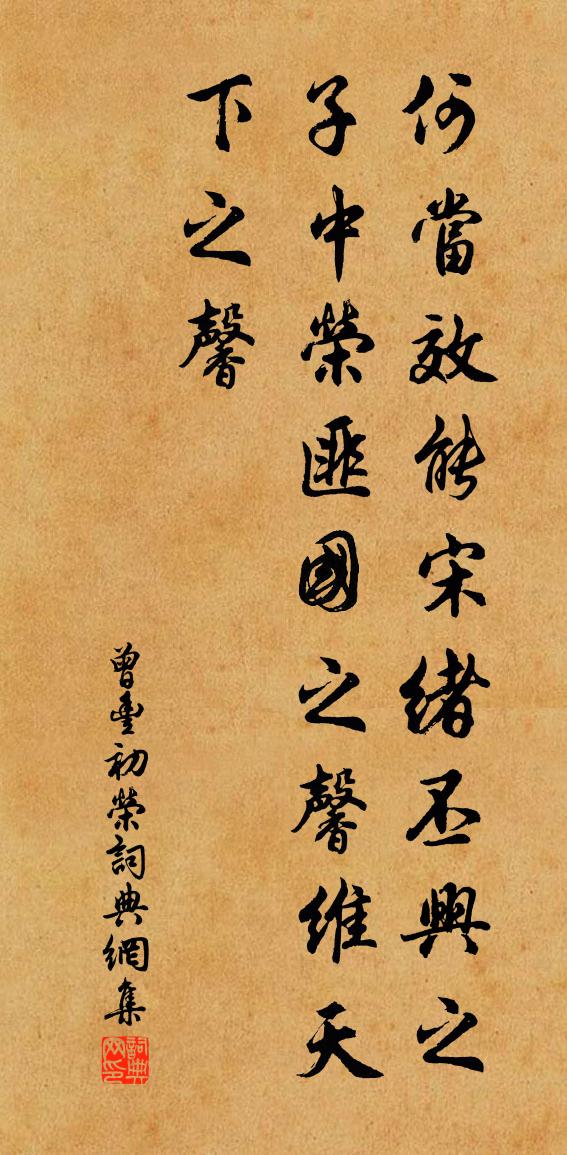 何當效能宋緒丕興之
子中榮匪國之馨維天
下之馨
曾豐初榮詞典網集
詞典网印